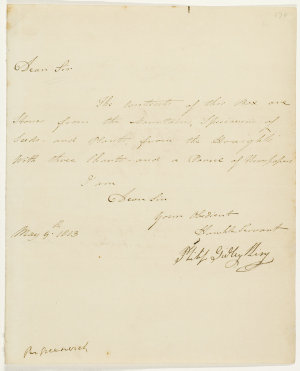 Dear Sir
The contents of this Box are
Stones from the Mountain, Specimens of
Seeds and Plants from the
with three Charts and a Parcel of Newspapers
I am
Dear Sir
Your Obedient
Humble Servant
May 9th 1803
Philip Gidley King
Per Greenwich